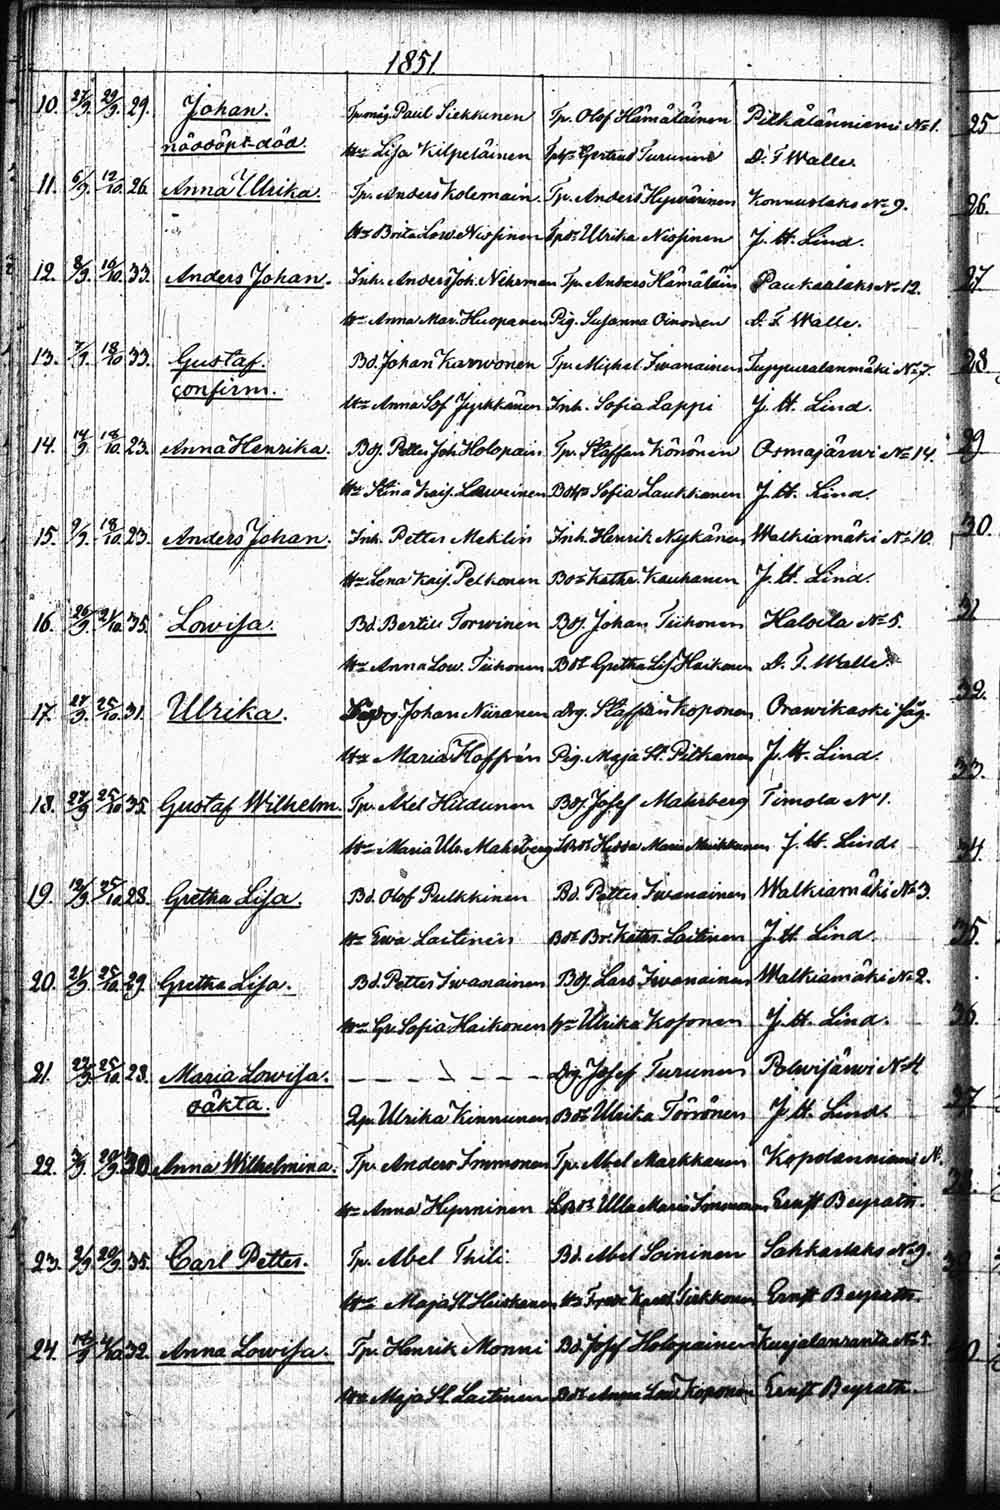 1851
10. 27/9. 29/9. 29. Johan. Paul Siekkinen Tp. Olof Hämäläinen Pitkälänniemi No 1. 25
nödöpt död. Hu Lisa Kilpeläinen Gertrud Turunen D. F. Walle.
11. 6/9. 12/10. 26. Anna Ulrika. Tp. Anders Kolemain. Tp. Anders Hyvärinen Konnuslaks No 9. 26.
Hu Brita Low. Nissinen Ulrika Nissinen J. H. Lind.
12. 8/9. 33. Anders Johan. Inh. Anders Joh. Nehrman Tp. Anders Hämäläin Paukarlaks No 12. 27
Hu Anna Mar. Huopanen Pig. Susanna Oinonen D. F. Walle.
13. 7/9. 18/10. 33. Gustaf. Bd. Johan Karvonen Tp. Michel Iwanainen Tuppuralanmäki No 7. 28
confirm. Hu Anna Sof Jyrkkänen Inh. Sofia Lappi J. H. Lind.
14. 14/9. 18/10. 23. Anna Henrika. Bds. Petter Joh Holopain Tp. Staffan Könönen Osmajärwi No 14. 29
Hu Stina Kajs. Laweinen Sofia Laukkanen J. H. Lind.
15. 9/9. 18/10. 23. Anders Johan. Inh. Petter Meklin Inh. Henrik Nykänen Walkiamäki No 10. 30.
Hu Lena Kajs. Pelkonen Kathr. Kauhanen J. H. Lind.
16. 26/9. 21/10. 35. Lowisa. Bd. Bertil Torwinen Bds. Johan Tiihonen Haloila No 5.
Hu Anna Low. Tiihonen Bdr Gretha Lis. Haikonen D. F. Walle.
17. 27/9. 25/10. 31. Ulrika. Johan Niiranen Drg. Staffan Koponen Orawikoski såg. 32.
Hu Maria Hoffrén Pig. Maja St. Pitkanen J. H. Lind. 33.
18. 27/9. 25/10. 35. Gustaf Wilhelm. Tp. Abel Hudunen Bds. Josef Mahrberg Timola No 1.
Hu Maria Ulr. Mahrberg Maria J. H. Lind. 34.
19. 12/9. 25/10. 28. Gretha Lisa. Bd. Olof Pulkkinen Bd. Petter Iwanainen Walkiamäki No 3.
Hu Ewa Laitinen Bdr Br. Kathr. Laitinen J. H. Lind. 35.
20. 21/9. 25/10. 29. Gretha Lisa. Bd. Petter Iwanainen Bds. Lars Iwanainen Walkiamäki No 2.
Hu Gr. Sofia Haikonen Hu Ulrika Koponen J. H. Lind. 36.
21. 22/9. 25/10. 28. Maria Lowisa. Drg. Josef Turunen Polwijärwi No 4
oäkta. Qp. Ulrika Kinnunen Bdr Ulrika Törrönen J. H. Lind. 37
22. 3/9. 29/9. 30 Anna Wilhelmina. Tp. Anders Immonen Tp. Abel Markkanen Kopolanniemi N.
Hu Anna Hyvninen Ulla Maria Immonen Ernst Beyrath.
23. 2/9. 29/9. 35. Carl Petter. Tp. Abel Thili. Bd. Abel Soininen Sahkarlaks No 9.
Hu Maja St. Heiskanen Tirkkonen Ernst Beyrath.
24. 4/10. 32. Anna Lowisa. Tp. Henrik Monni Bd. Josef Holopainen Kurjalanranta No 5.
Hu Maja St. Laitinen Bdr Anna Low Koponen Ernst Beyrath.